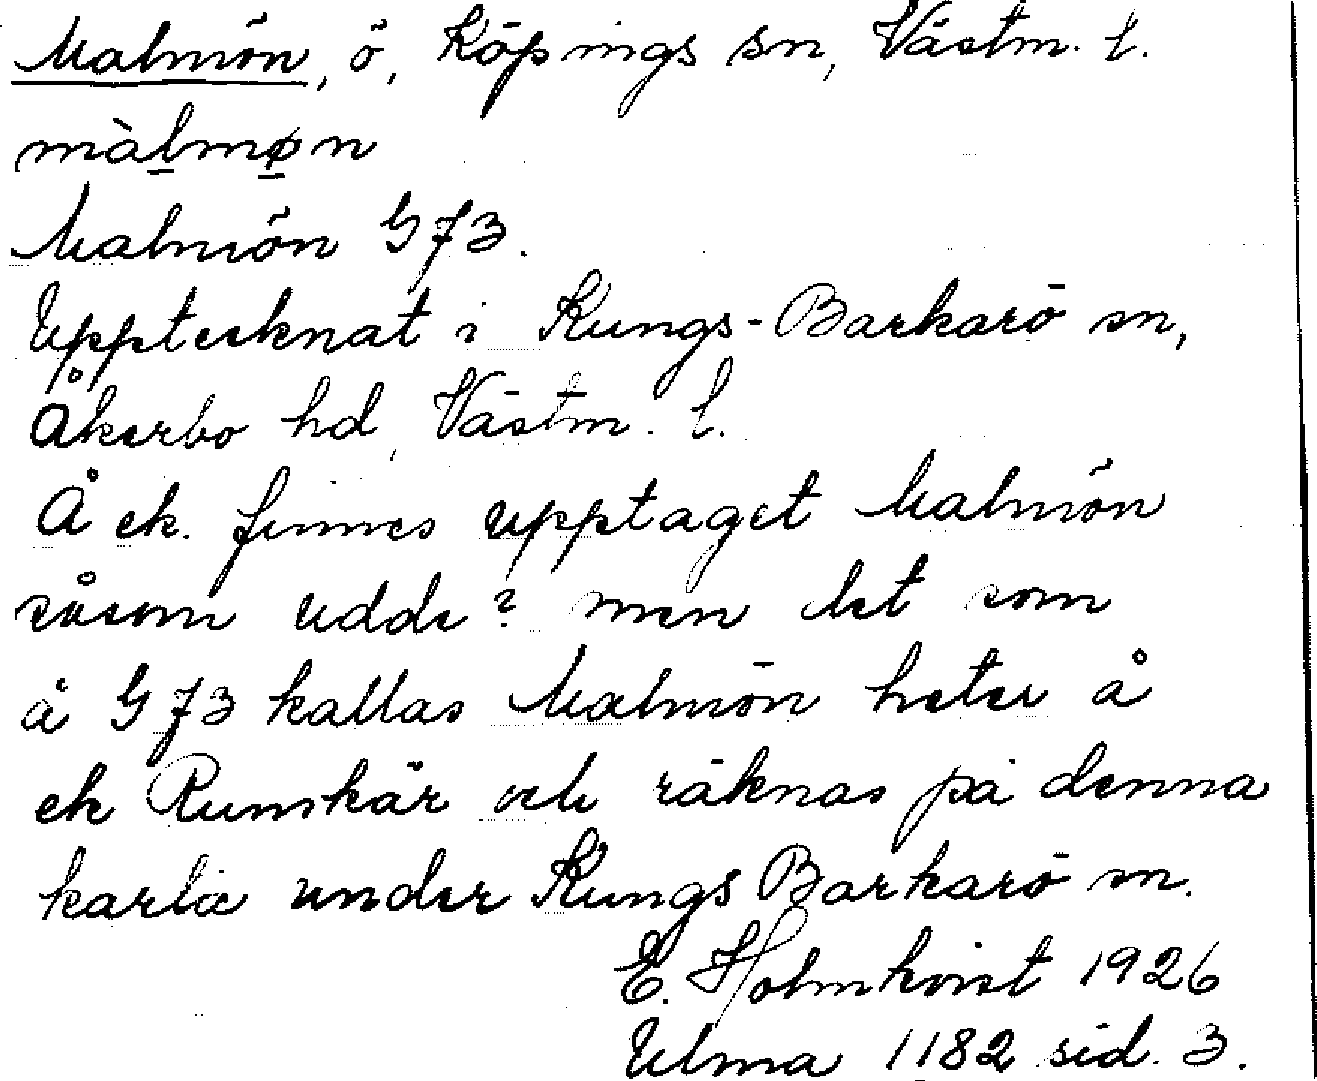 Malmön, ö, Köpings sn, Västm. l.
màl̲mø̲n
Malmön G 73.
Upptecknat i Kungs-Barkarö sn,
Åkerbo hd, Västm. l.
Å ek. finnes upptaget Malmön
såsom udde? men det som
å G 73 kallas Malmön heter å
ek Runskär och räknas på denna
karta under Kungs Barkarö sn.
E. Holmkvist 1926
Ulma 1182 sid. 3.